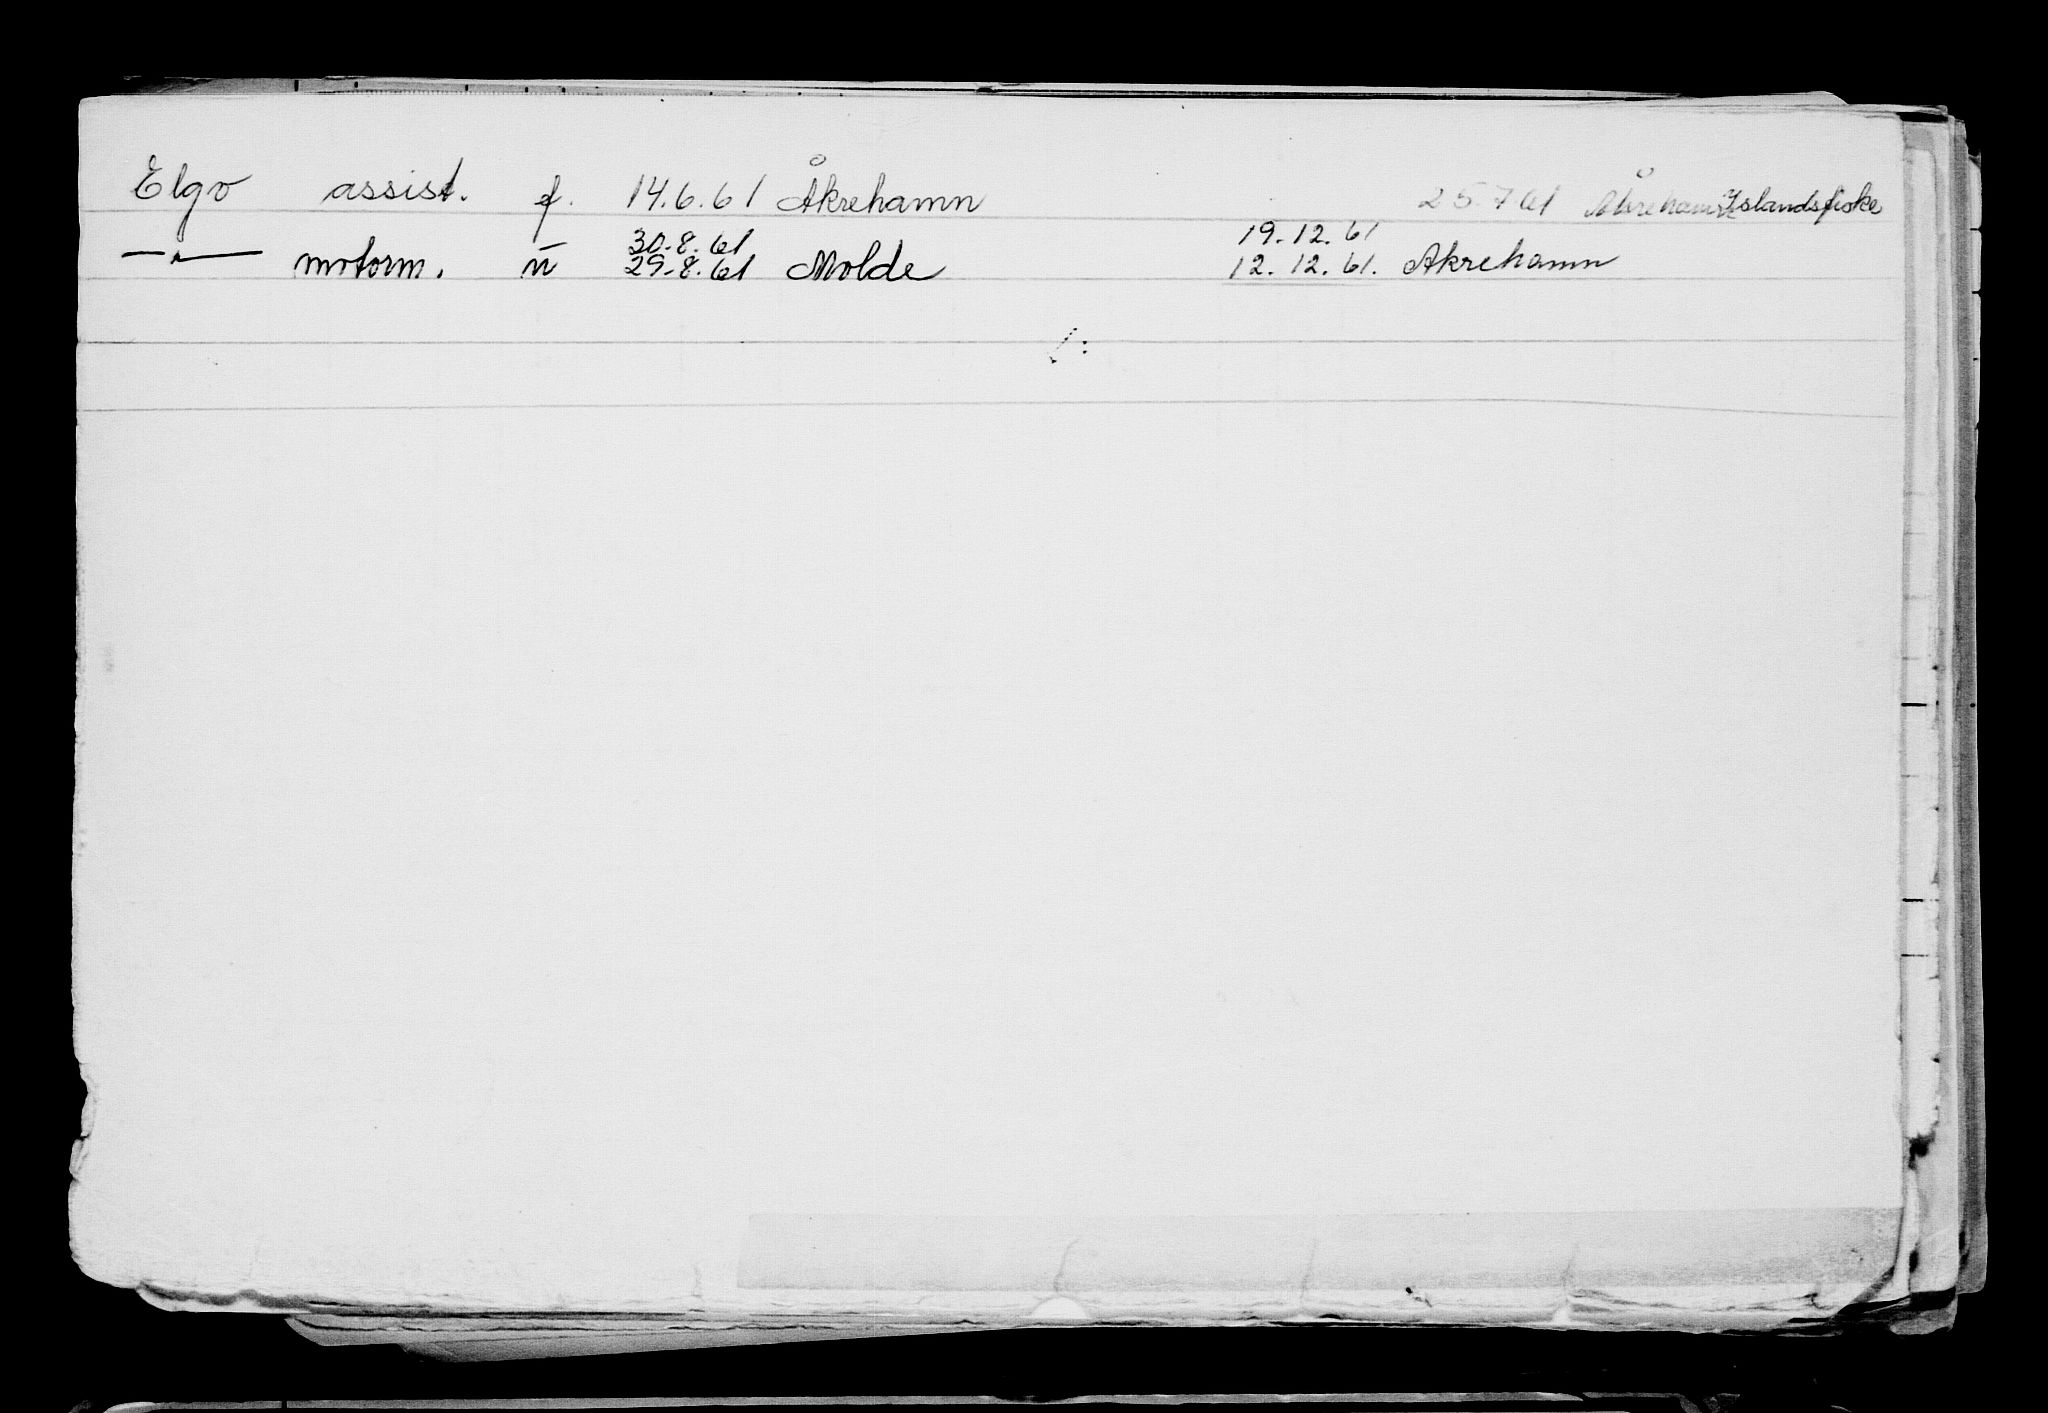 Elgo assist. f. 14.6.61 Åkrehamn 25.7 61 Åkrehamn Islandsfiske
30.8.61 19.12.61
—"— motorm. u 29.8.61 Molde 12.12.61. Åkrehamn